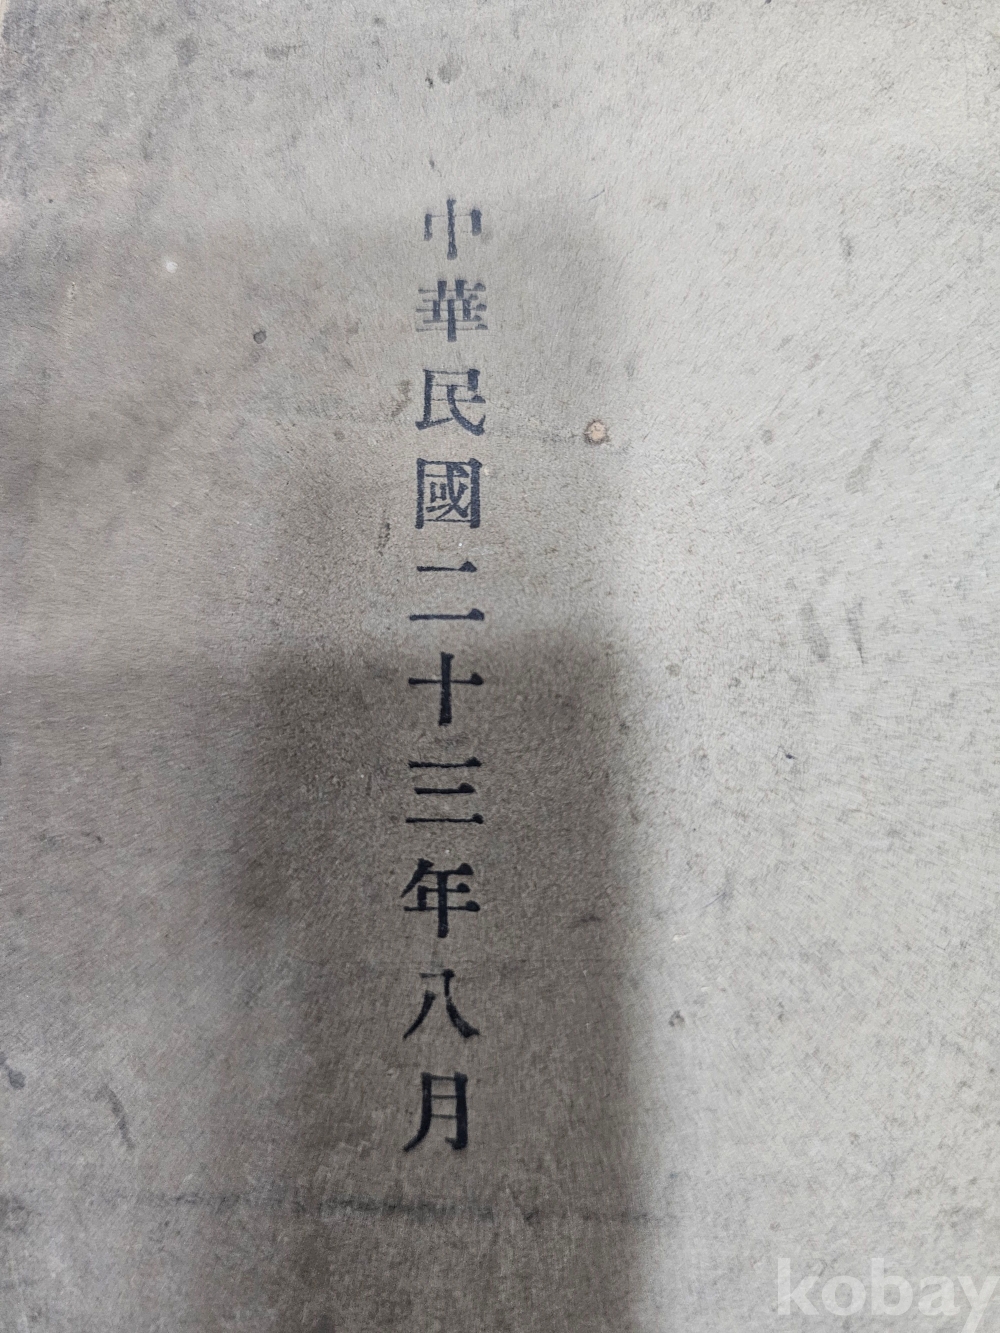 中華民國二十三年八月
kobay